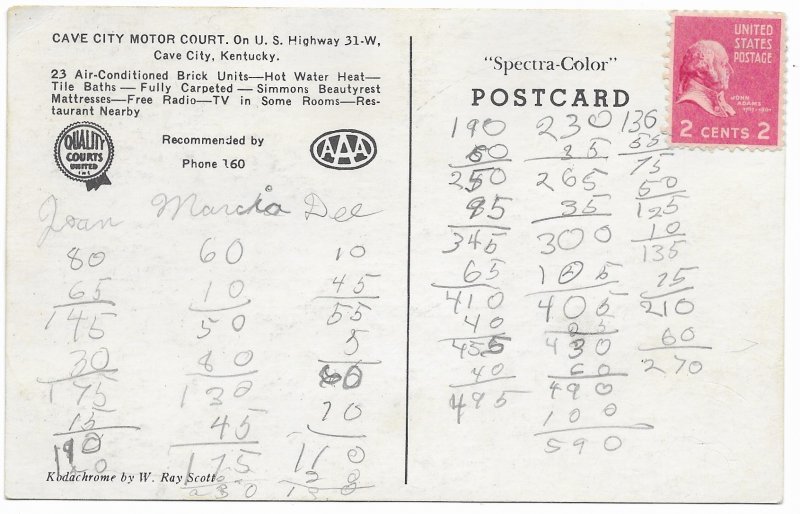 CAVE CITY MOTOR COURT. On U. S. Highway 31-W,
Cave City, Kentucky.
23 Air-Conditioned Brick Units—Hot Water Heat—
Tile Baths — Fully Carpeted — Simmons Beautyrest
Mattresses—Free Radio—TV in Some Rooms—Res-
taurant Nearby
QUALITY
COURTS
UNITED
INC
Recommended by
Phone 160
AAA
Joan
80
65
145
30
175
15
190
Marcia
60
10
50
80
130
45
175
Dee
10
45
55
5
60
70
110
Kodachrome by W. Ray Scott
"Spectra-Color"
POSTCARD
UNITED
STATES
POSTAGE
JOHN
ADAMS
1797-1801
2 CENTS 2
190
60
250
85
345
65
410
40
455
40
495
230
35
265
35
300
105
405
25
430
60
490
100
590
136
55
75
50
125
10
135
75
210
60
270